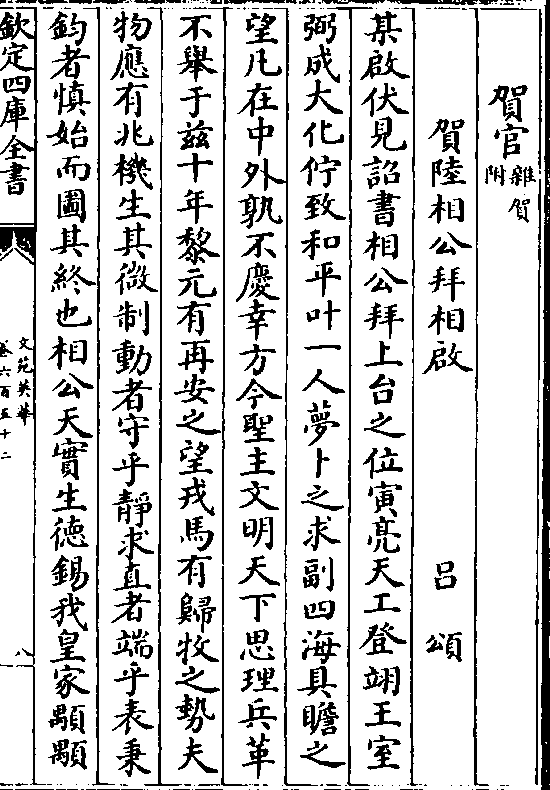 賀官雜賀附
賀陸相公拜相啟 吕頌
某啟伏見詔書相公拜上台之位寅亮天工登翊王室
弼成大化佇致和平叶一人夢卜之求副四海具瞻之
望凡在中外孰不慶幸方今聖主文明天下思理兵革
不舉于兹十年黎元有再安之望戎馬有歸牧之勢夫
物應有兆機生其微制動者守乎靜求直者端乎表秉
鈞者慎始而圖其終也相公天實生德錫我皇家顒顒
欽定四庫全書
文苑英華
卷六百五十二
八